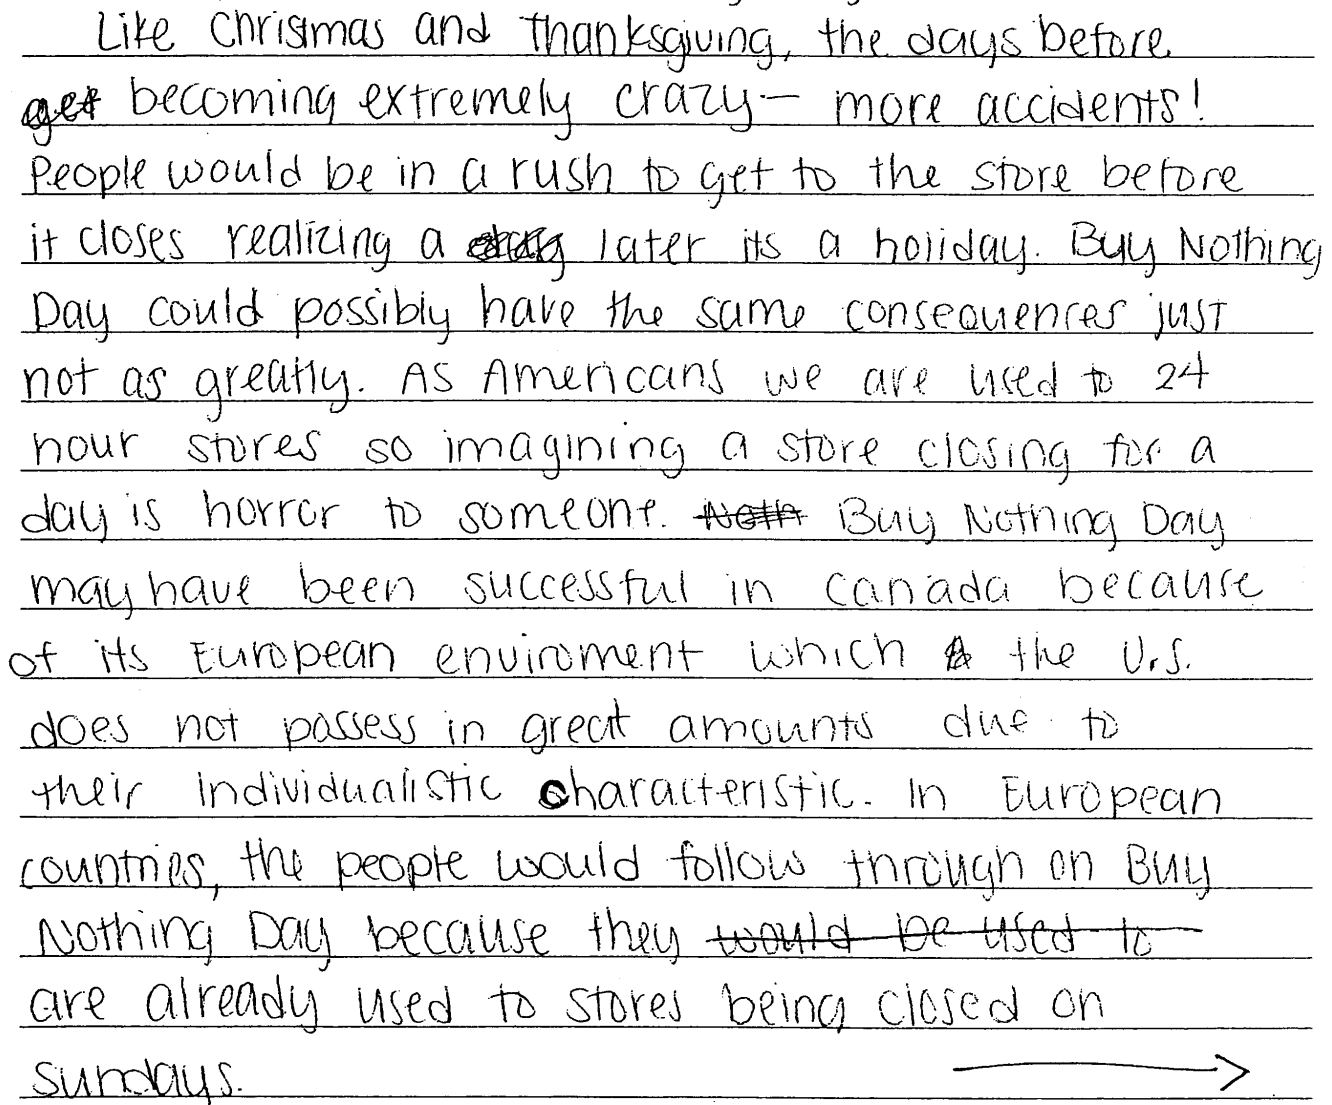 Like Chrismas and Thanksgiving, the days before
get becoming extremely crazy — more accidents!
People would be in a rush to get to the store before
it closes realizing a later its a holiday. Buy Nothing
Day could possibly have the same consequences just
not as greatly. As Americans we are used to 24
hour stores so imagining a store closing for a
day is horror to someone. Noth Buy Nothing Day
may have been successful in Canada because
of its European enviroment which the U.S.
does not possess in great amounts due to
their individualistic characteristic. In European
countries, the people would follow through on Buy
Nothing Day because they would be used to
are already used to stores being closed on
sundays.